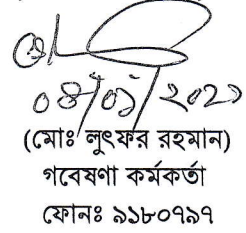 ০৪/০১/২০২১
(মোঃ লুৎফর রহমান)
গবেষণা কর্মকর্তা
ফোনঃ ৯১৮০৭৯৭